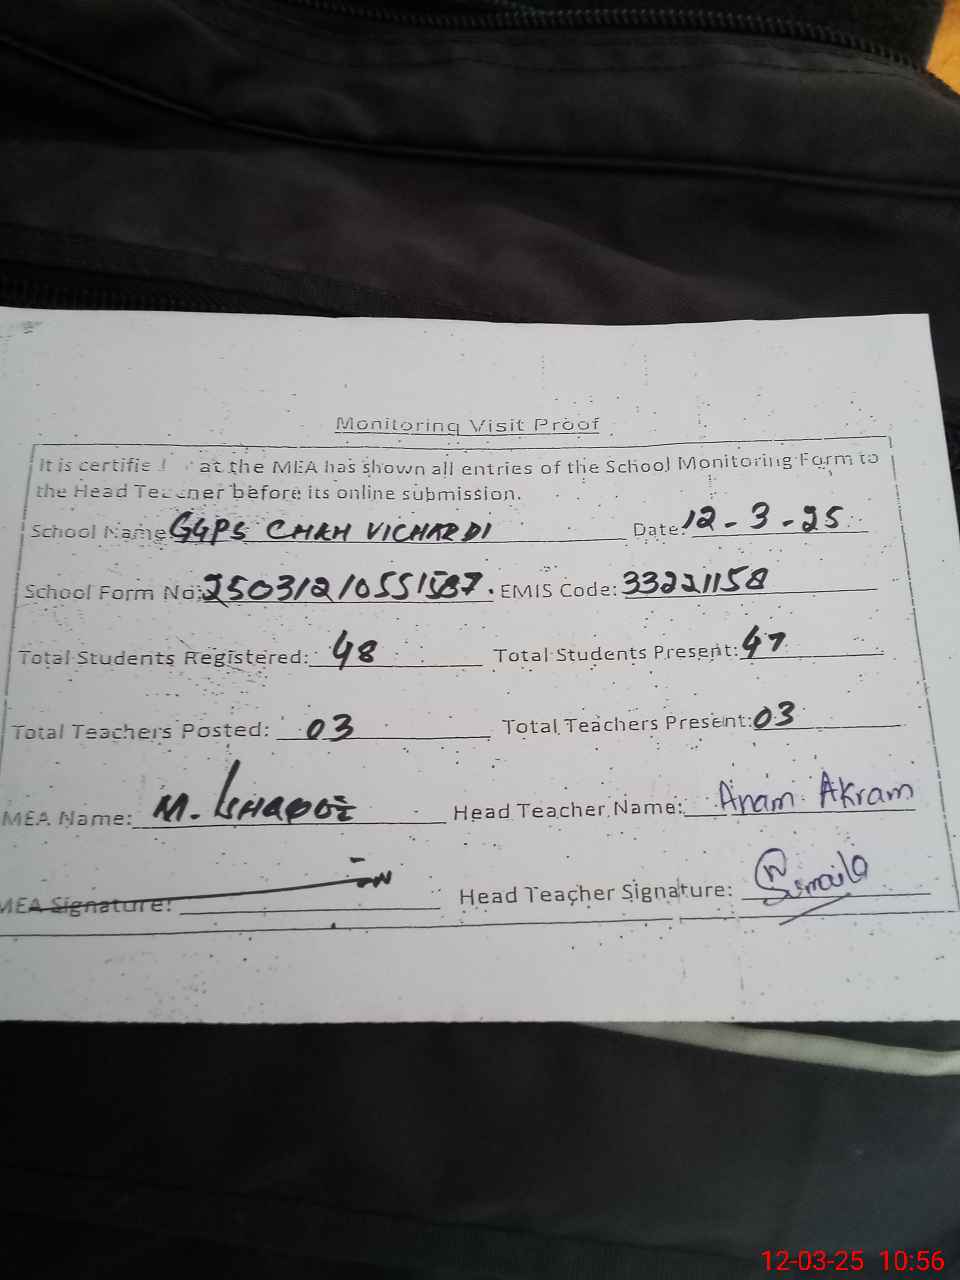 Monitoring Visit Proof
It is certified at the MEA has shown all entries of the School Monitoring Form to
the Head Teacher before its online submission.
School Name GGPS CHAH VICHARDI Date: 12-3-25
School Form No: 250312105515 87. EMIS Code: 33221158
Total Students Registered: 48 Total Students Present: 47
Total Teachers Posted: 03 Total Teachers Present: 03
MEA Name: M. Head Teacher Name: Anam Akram
MEA Signature: Head Teacher Signature:
12-03-25 10:56